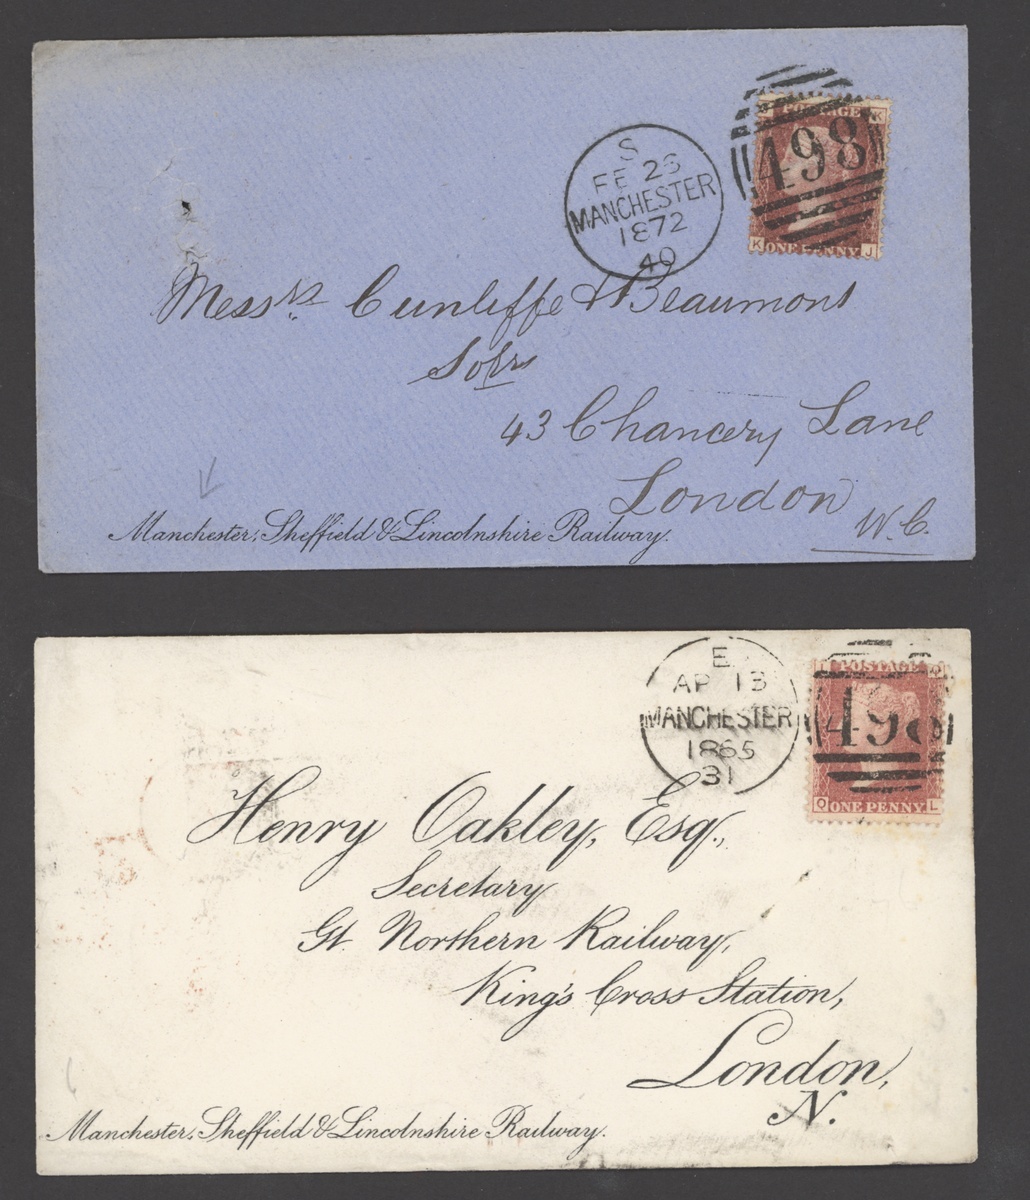 POSTAGE
K
498
K ONE PENNY J
S
FE 23
MANCHESTER
1872
40
Messrs. Cunliffe & Beaumont
Solrs
43 Chancery Lane
London
W.C.
Manchester, Sheffield & Lincolnshire Railway.
E
AP 13
MANCHESTER
1865
31
POSTAGE
498
Q ONE PENNY L
Henry Oakley, Esq.,
Secretary
Gt. Northern Railway,
King's Cross Station,
London,
N.
Manchester, Sheffield & Lincolnshire Railway.